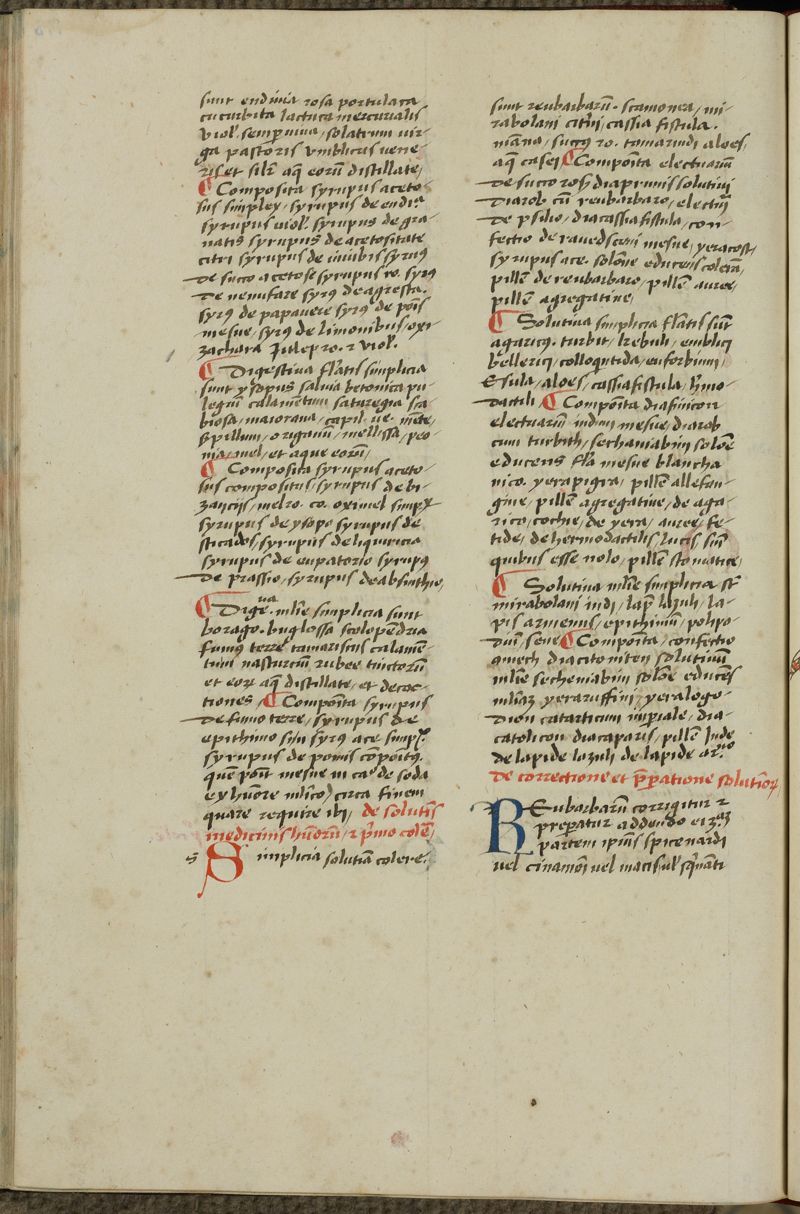 sunt endiuia rosa portulaca
cucurbita lactuca mercurialis
viol. semperuiua / solatrum uir-
ga pastoris vmblicus vene-
ris et silr aq̃ eorũ distillate /
¶ Composita syrupus aceto-
sus simplex / syrupus de endi.ᵃ
syrupus viol. syrupus de gra-
natis syrupus de acetositate
citri syrupus de iuiubis syrus
de succo acetose syrupus ro. syrꝰ
de nenufare syrꝰ de agresta.
syrꝰ de papauere syrꝰ de põis
mesue / syrꝰ de limonibus / oxi
zachara Julep ro. ⁊ viol.
¶ Digestiua flãtis simplicia
sunt ysopus saluia betonica pu-
legiũ calamentum saturegia sca-
biosa / maiorana / capil. ue. mẽte /
serpillum / origanũ / mellissa / peo-
nia / mel / et aque eorũ /
¶ Composita syrupus aceto-
sus compositus / syrupus de bi-
zancijs / mel ro. co. oximel simpꝉ
syrupus de ysopo syrupus de
sticados / syrupus de liquiricia
syrupus de eupatorio syrupꝰ
de prassio / syrupus de absinthio /
¶ Digeᵘᵃ. mlĩe simplicia sunt
borago. buglossa scolopendria
fumꝰ terre tamariscus calamẽ-
tum nasturciũ rubee tinctorũ
et eorꝝ aq̃ distillate / et decoc-
tiones / ¶ Compõita syrupus
de fumo terre / syrupus de
epithimo siui syrꝰ ace. simpꝉ.
syrupus de pomis cõpõitꝰ.
quẽ põit mesue in caᵒ de soda
ex hũore mlĩco) circa finem
quare require ibi / de solutiuis
medicinis hũorũ / ⁊ p̃mo colẽ /
s Simplicia solutiua colere.
sunt reubarbarũ. scamonea / mi-
rabolani citrini cassia fistula.
manna / succꝰ ro. tamarindi aloes /
aq̃ casei ¶ Compõita electuariũ
de succo ros̃ diaprunis solutiuũ
diarob cũ reubarbaro / electuũ
de psilio / diacassiafistula / con-
fectio de rauedsceni mesue / yeracost /
syrupus ace. solõne educens colerã /
pillẽ de reubarbaro / pillẽ auree /
pillẽ agregatiue /
¶ Solutiua simplicia flãtis sũt
agaricꝰ. turbit / kebuli / emblici
bellerici / colloquintida / euforbium /
Esula / aloes / cassiafistula / hermo-
dactili / ¶ Compõita diafinicon
electuariũ indum mesue / diarob
cum turbith / sechaniabin solõne
educens flã mesue blancha
nico. yerapigra / pillẽ allefan-
gine / pillẽ agregatiue / de aga-
rico / cochie / de yera / auree / fe-
tide / de hermodactilis / lucis sine
quibus esse nolo / pillẽ stomatice /
¶ Solutiua mlĩe simplicia sũt
mirabolani indi / lap̃ lazuli / la-
pis armenus / epithimũ / polipo-
diũ / sene ¶ Compõita / confectio
hamech diacitoniten solutiuũ
mlĩe sechemiabin solõne educẽs
mlĩaz yeraruffini / yeralogo-
dion catarticum inp̃iale / dia-
catolicon diacaparis / pillẽ Inde
de lapide lazuli de lapide arᵐᵒ
de correctione et p̃paratione solutiuoꝝ
Reubarbarũ corrigitur ⁊
preparatur addendo ei 3ᵃᵐ
partem ipsius spicenardi
uel cinamõi uel macis / ul' sq̃nãti